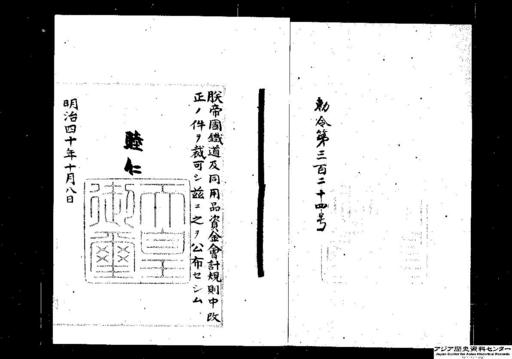 勅令第三百二十四号
朕帝國鐵道及同用品資金會計規則中改
正ノ件ヲ裁可シ茲ニ之ヲ公布セシム
睦仁
天皇
御璽
明治四十年十月八日
アジア歴史資料センター
Japan Center for Asian Historical Records